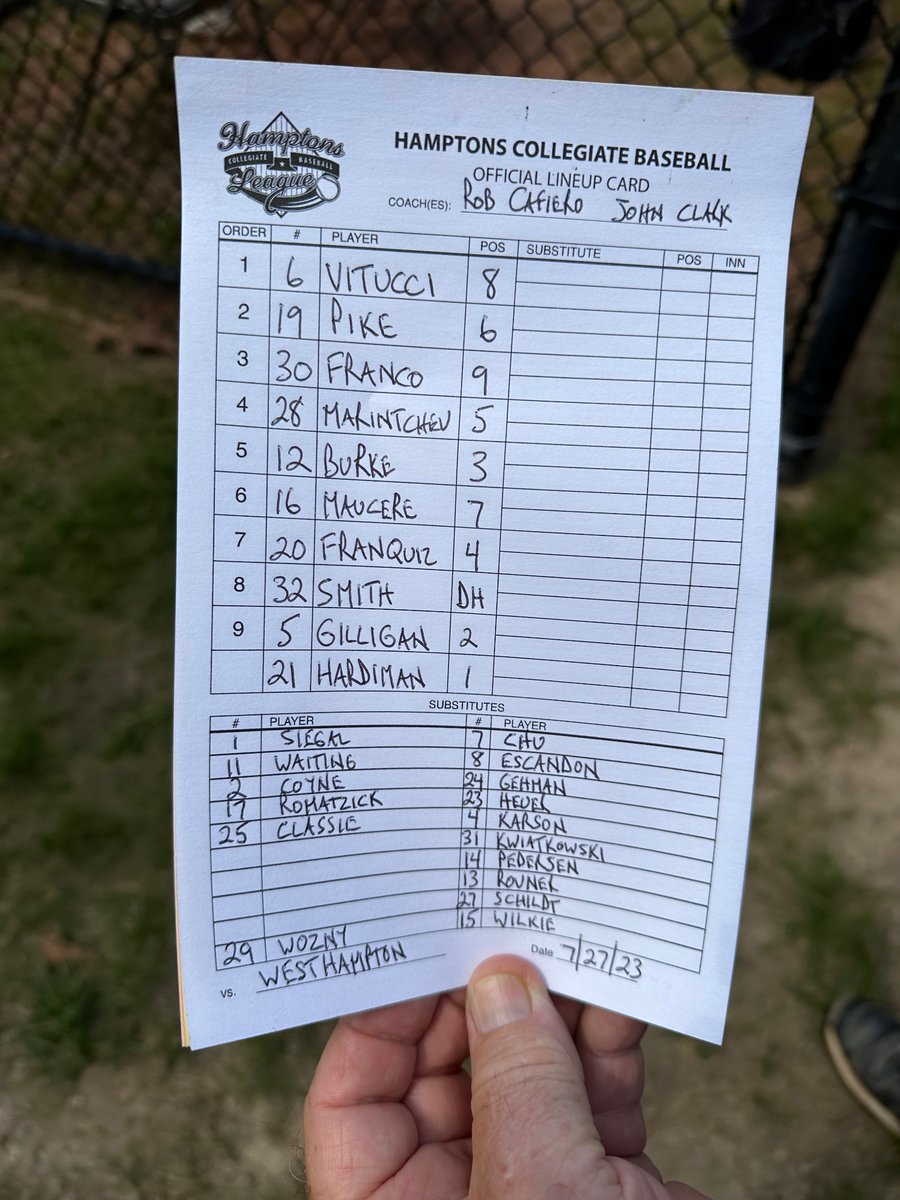 Hamptons
COLLEGIATE BASEBALL
League
HAMPTONS COLLEGIATE BASEBALL
OFFICIAL LINEUP CARD
COACH(ES): ROB CAFIERO JOHN CLARK
ORDER # PLAYER POS SUBSTITUTE POS INN
1 6 VITUCCI 8
2 19 PIKE 6
3 30 FRANCO 9
4 28 MARINTCHEV 5
5 12 BURKE 3
6 16 MAUCERE 7
7 20 FRANQUIZ 4
8 32 SMITH DH
9 5 GILLIGAN 2
21 HARDIMAN 1
SUBSTITUTES
# PLAYER # PLAYER
1 SIEGAL 7 CHU
11 WAITING 8 ESCANDON
2 COYNE 24 GEHMAN
17 ROMATZICK 23 HEUER
25 CLASSIE 4 KARSON
31 KWIATKOWSKI
14 PEDERSEN
13 ROVNER
27 SCHILDT
15 WILKIE
29 WOZNY
vs. WESTHAMPTON Date 7/27/23